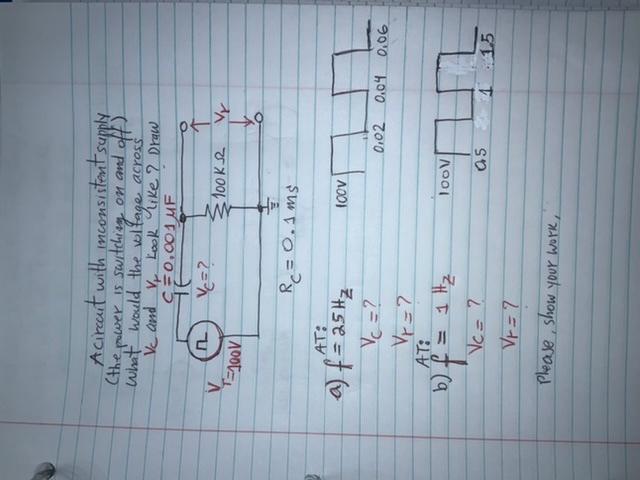 A circuit with inconsistent supply
(the power is switching on and off)
What would the voltage across
Vc and Vr look like? Draw
C=0.001µF
Vc=?
VT=100V
100KΩ
Vr
RC=0.1ms
a) AT: f=25Hz
Vc=?
Vr=?
100V
0.02 0.04 0.06
b) AT: f= 1 Hz
Vc=?
Vr=?
100V
0.5 1 1.5
Please, show your work,